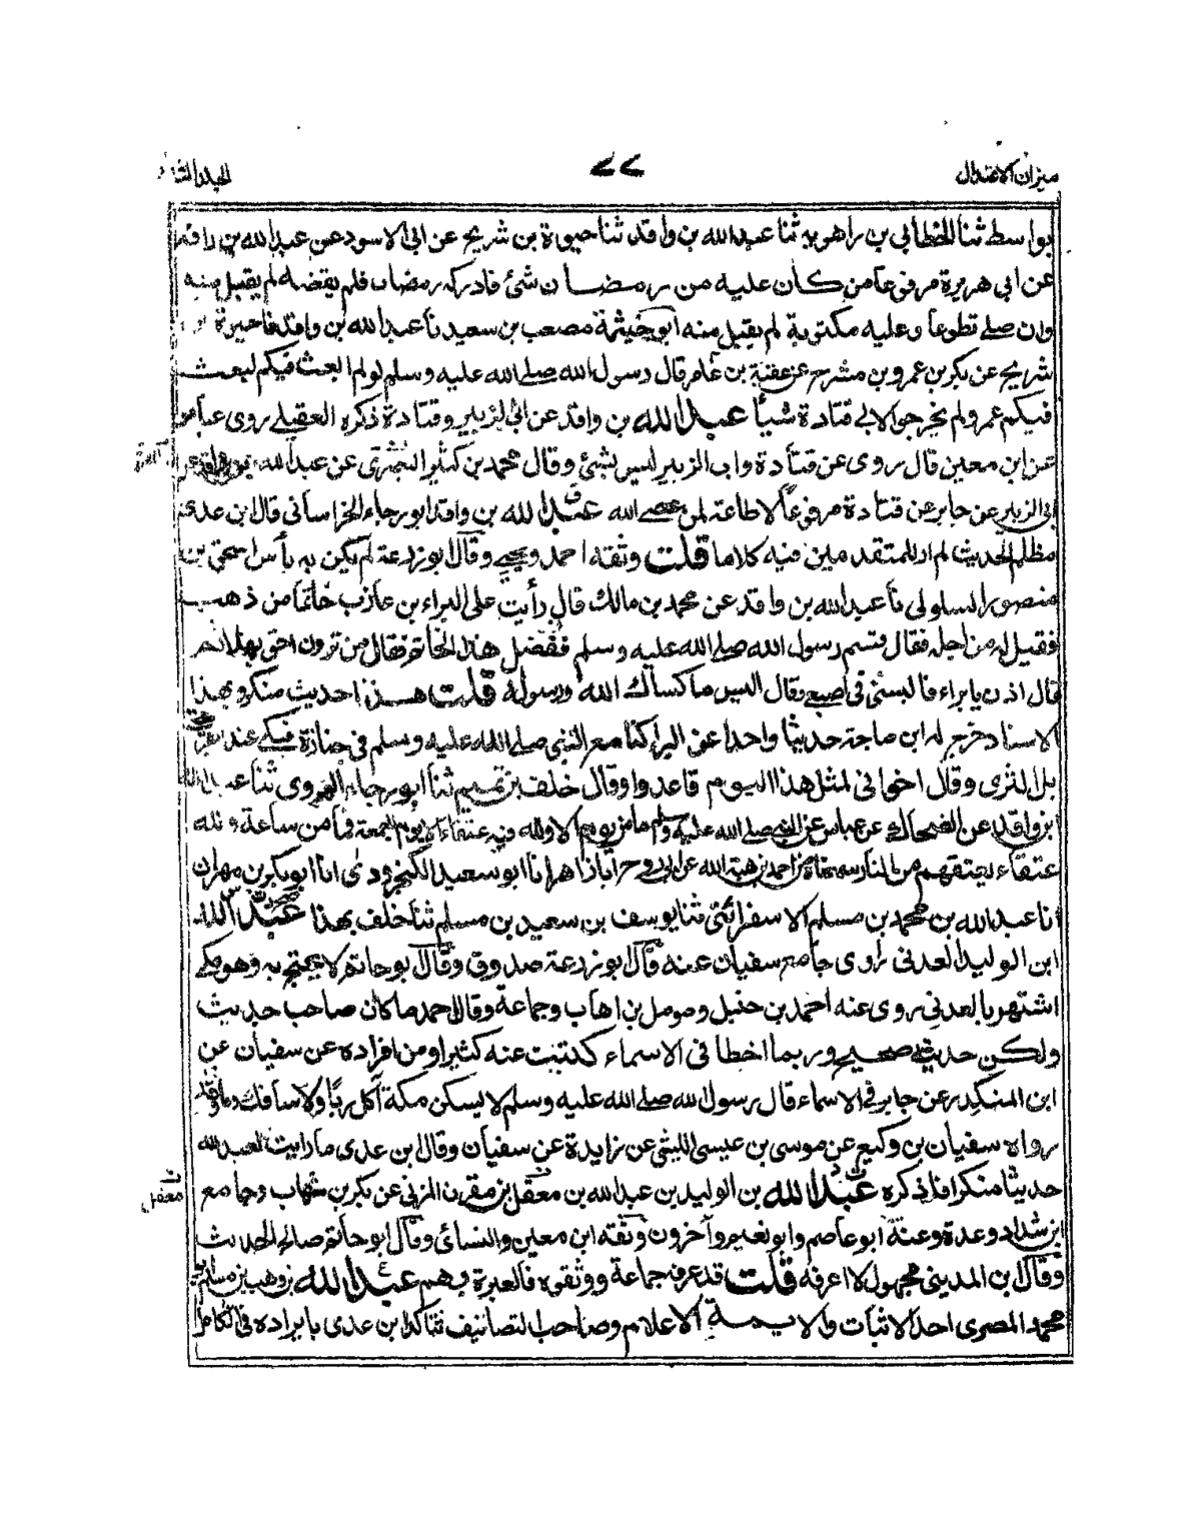 ميزان الاعتدال
٧٧
الجلد الثا
بواسط ثنا الخطابي بن راهويه ثنا عبد الله بن واقد ثنا حيوة بن شريح عن ابى الاسود عن عبد الله بن رافع
عن ابى هريرة مرفوعا من كان عليه من رمضان شئ فادركه رمضان فلم يقضه لم يقبل منه
وان صلے تطوعا وعليه مكتوبة لم يقبل منه ابو خيثمة مصعب بن سعيد نا عبد الله بن واقد نا حيوة
شريح عن بكر بن عمرو بن مشرح عن عقبة بن عامر قال رسول الله صلے الله عليه وسلم لو لم ابعث فيكم لبعث
فيكم عمر ولم يخرجوا لابى قتادة شيأ عبد الله بن واقد عن ابى الزبير وقتادة ذكره العقيلے روى عباس
عن ابن معين قال روى عن قتادة وابى الزبير ليس بشئ وقال محمد بن كثير عن عبد الله بن واقد عن
ابى الزبير عن جابر عن قتادة مرفوعا لا طاعة لمن عصے الله عبد الله بن واقد ابو رجاء الخراسانى قال ابن عدى
مظلم الحديث لم ار للمتقدمين فيه كلاما قلت وثقه احمد ويحيى وقال ابو زرعة لم يكن به بأس اسحق بن
منصور السلولى نا عبد الله بن واقد عن محمد بن مالك قال رأيت على البراء بن عازب خاتما من ذهب
فقيل له من اجله فقال قسم رسول الله صلے الله عليه وسلم ففضل هذا الخاتم فقال من ترون احق بهذا ثم
قال اذن يا براء فالبسنى فى اصبعى وقال البس ما كساك الله ورسوله قلت هذا حديث منكر وبهذا
الاسناد خرج له ابن ماجة حديثا واحدا عن البراء كنا مع النبى صلے الله عليه وسلم فى جنازة فبكى عند
بل الثرى وقال اخوانى لمثل هذا اليوم فاعدوا وقال خلف بن تميم ثنا ابو رجاء الهروى ثنا عبد الله
ابن واقد عن الضحاك عن عباس عن النبى صلے الله عليه وسلم ما من يوم الا ولله فيه عتقاء الا يوم الجمعة فما من ساعة ولله
عتقاء يعتقهم من النار احمد بن هبة الله عن ابى روح انا زاهر انا ابو سعيد الكنجرودى انا ابو بكر بن مهران
انا عبد الله بن محمد بن مسلم الاسفرائنى ثنا يوسف بن سعيد بن مسلم ثنا خلف بهذا عبد الله
ابن الوليد العدنى راوى جامع سفيان عنه قال ابو زرعة صدوق وقال ابو حاتم لا يحتج به وهو مكے
اشتهر بالعدنى روى عنه احمد بن حنبل ومومل بن اهاب وجماعة وقال احمد ما كان صاحب حديث
ولكن حديثه صحيح وربما اخطا فى الاسماء كتبت عنه كثيرا ومن افراده عن سفيان عن
ابن المنكدر عن جابر فى الاسماء قال رسول الله صلے الله عليه وسلم لا يسكن مكة آكل ربا ولا سافك دم
رواه سفيان بن وكيع عن موسى بن عيسى الليثى عن زايدة عن سفيان وقال ابن عدى ما رايت لعبد الله
حديثا منكرا فاذكره عبد الله بن الوليد بن عبد الله بن معقل بن مقرن المزنى عن بكر بن شهاب وجامع
ابن شداد وعدة وعنه ابو عاصم وابو نعيم وآخرون وثقه ابن معين والنسائى وقال ابو حاتم صالح الحديث
وقال ابن المدينى مجهول لا اعرفه قلت قد عرفه جماعة ووثقوه فالعبرة بهم عبد الله بن وهب بن مسلم
محمد المصرى احد الاثبات والايمة الاعلام وصاحب التصانيف تناكد ابن عدى بايراده فى الكامل
معقل